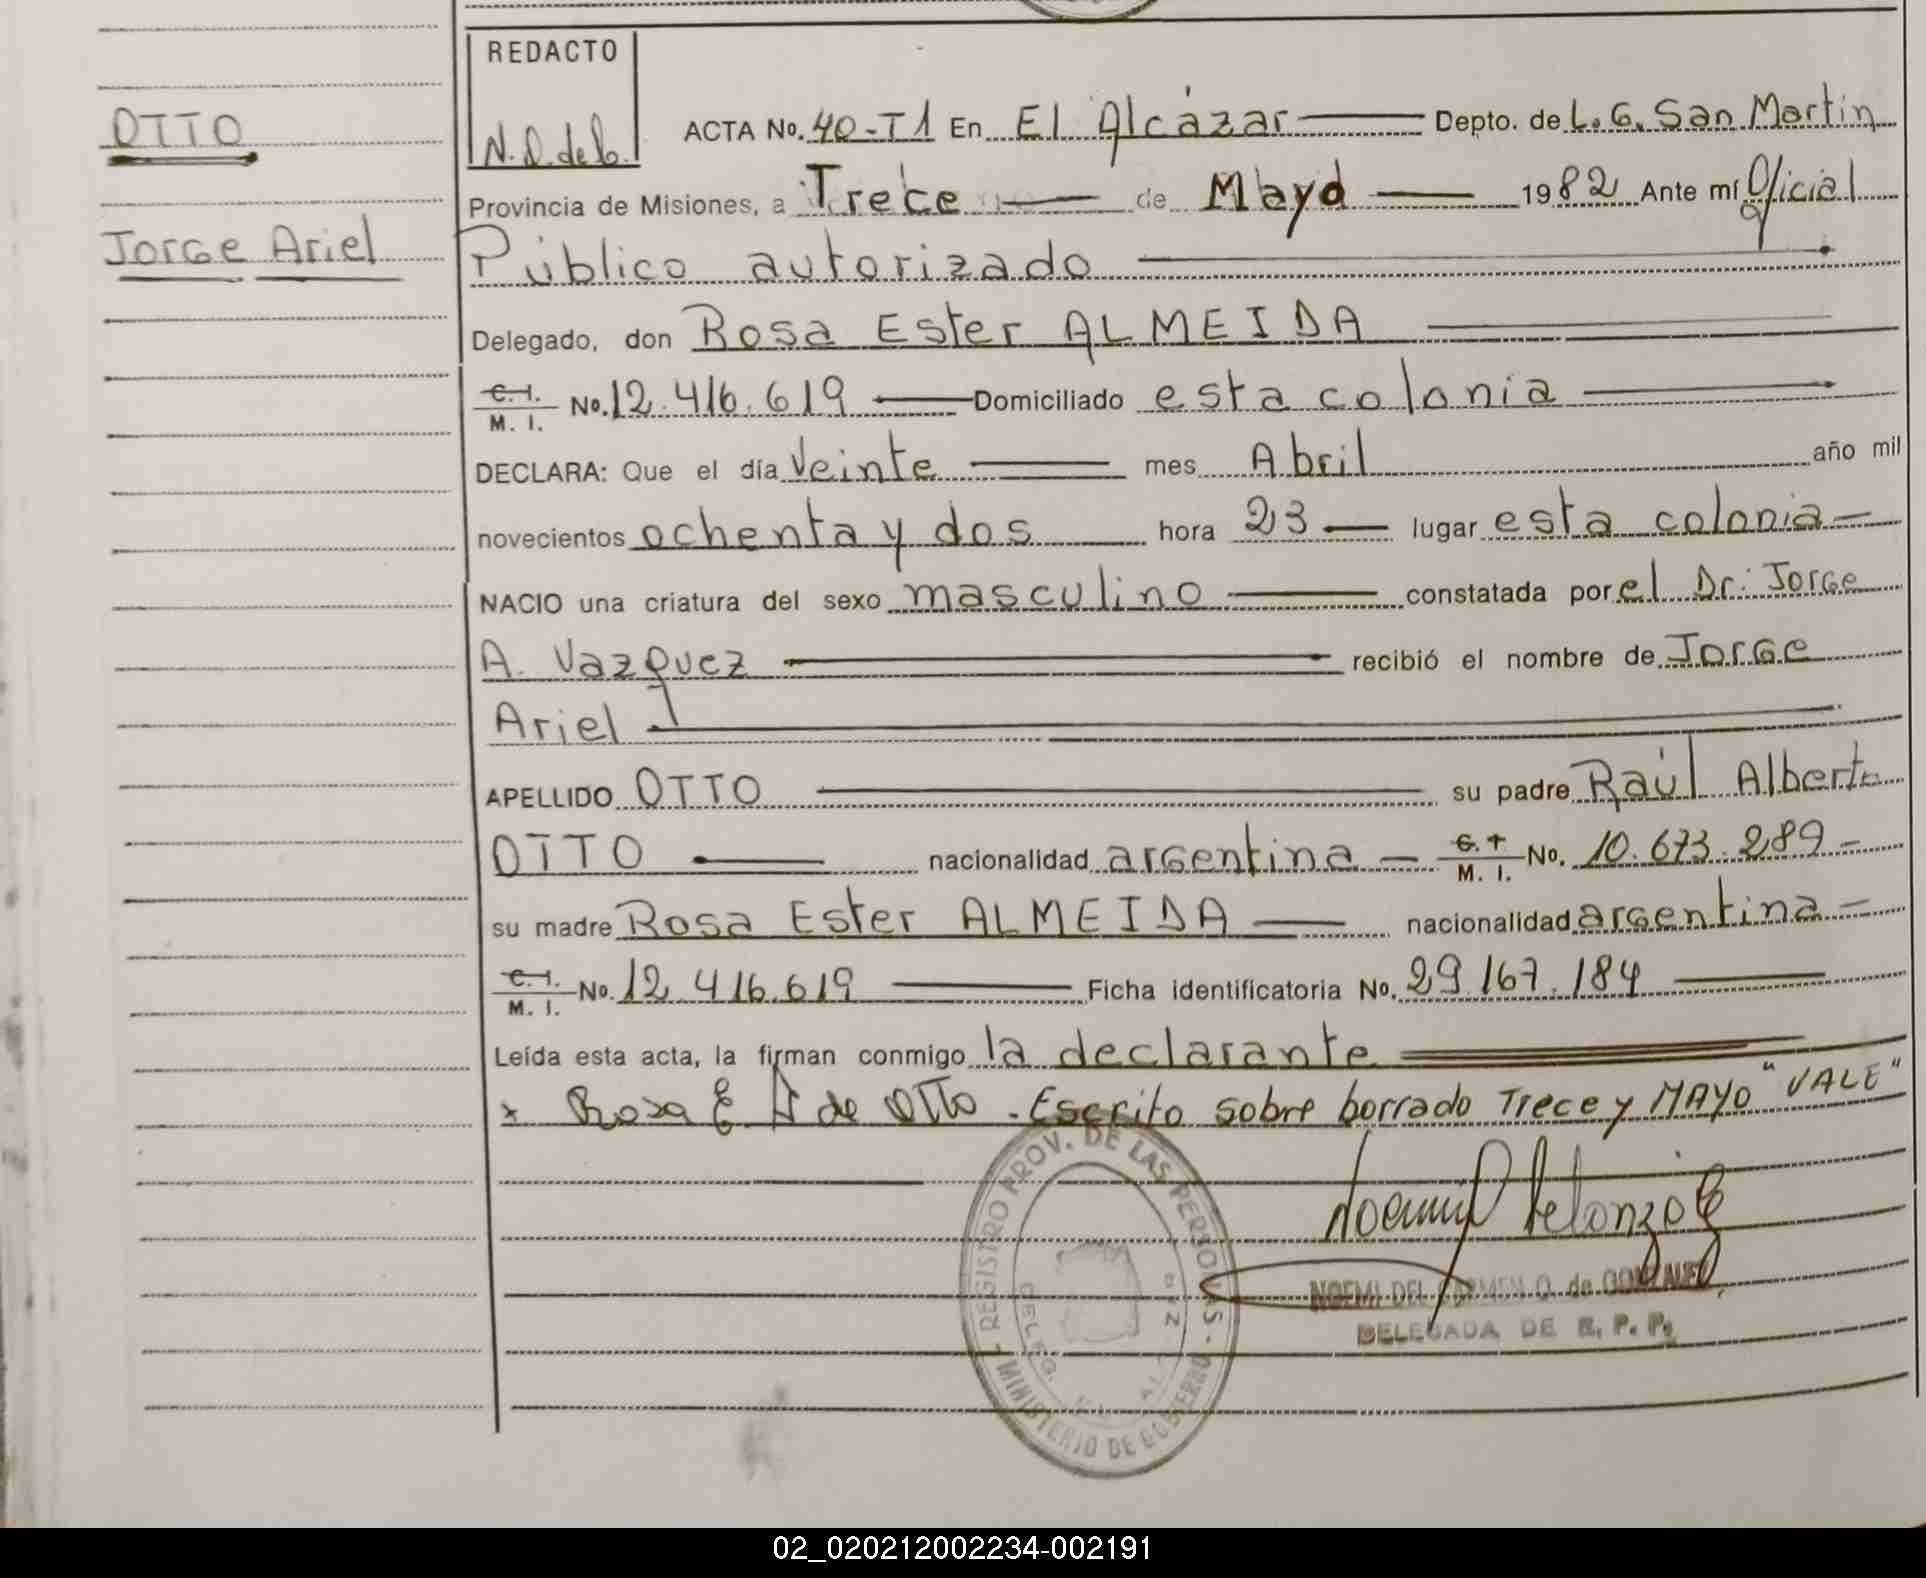 REDACTO
N. Q. de G.
OTTO
Jorge Ariel
ACTA No. 40-T1 En El Alcázar Depto. de L. G. San Martín
Provincia de Misiones, a Trece de Mayo 1982 Ante mí Oficial
Público autorizado
Delegado, don Rosa Ester ALMEIDA
C.I. / M. I. No. 12.416.619 Domiciliado esta colonia
DECLARA: Que el día Veinte mes Abril año mil
novecientos ochenta y dos hora 23 lugar esta colonia
NACIO una criatura del sexo masculino constatada por el Dr. Jorge
A. Vazquez recibió el nombre de Jorge
Ariel
APELLIDO OTTO su padre Raúl Alberto
OTTO nacionalidad argentina C.I. / M. I. No. 10.673.289
su madre Rosa Ester ALMEIDA nacionalidad argentina
C.I. / M. I. No. 12.416.619 Ficha identificatoria No. 29.167.184
Leída esta acta, la firman conmigo la declarante
x Rosa E A de Otto . Escrito sobre borrado Trece y MAYO "VALE"
REGISTRO PROV. DE LAS PERSONAS - MINISTERIO DE GOBIERNO -
DELEG.
NOEMI DEL CARMEN O. de GONZALEZ
DELEGADA DE R. P. P.
02_020212002234-002191